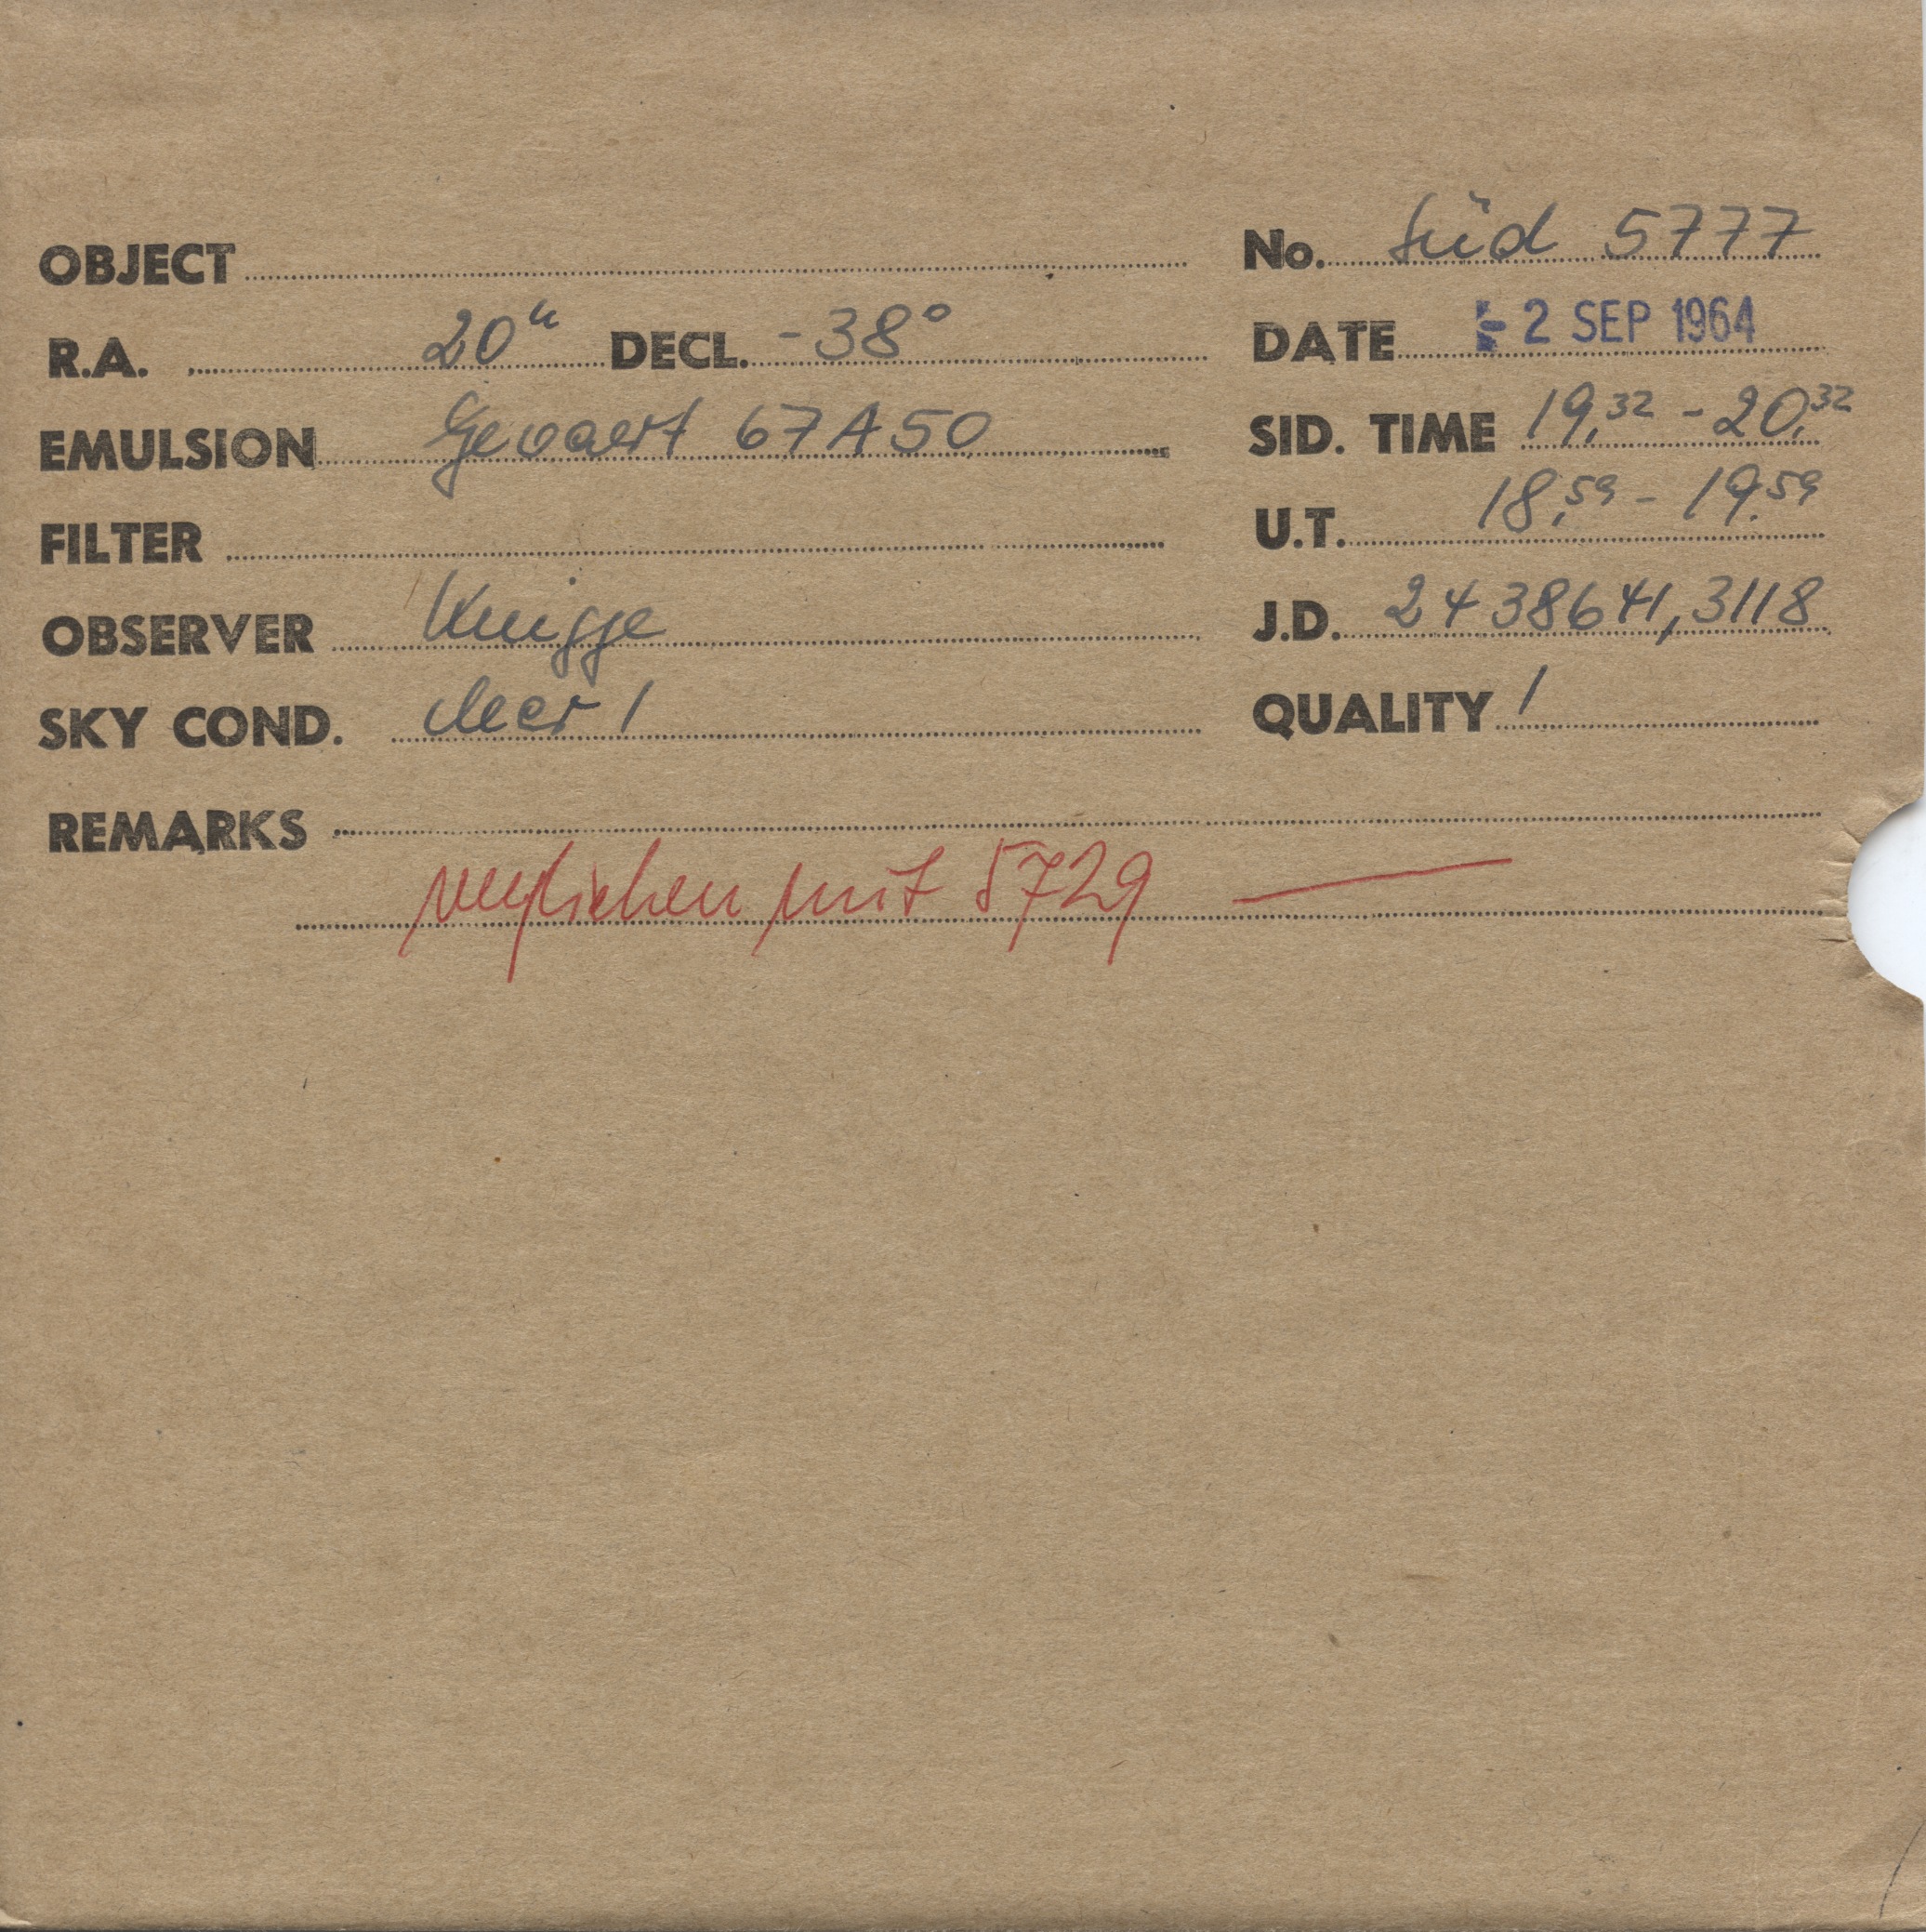 OBJECT No. Süd 5777
R.A. 20h DECL. -38° DATE - 2 SEP 1964
EMULSION Gevaert 67A50 SID. TIME 19,32 - 20,32
FILTER U.T. 18,59 - 19,59
OBSERVER Knigge J.D. 2438641,3118
SKY COND. clear 1 QUALITY 1
REMARKS
verglichen mit 5729 —